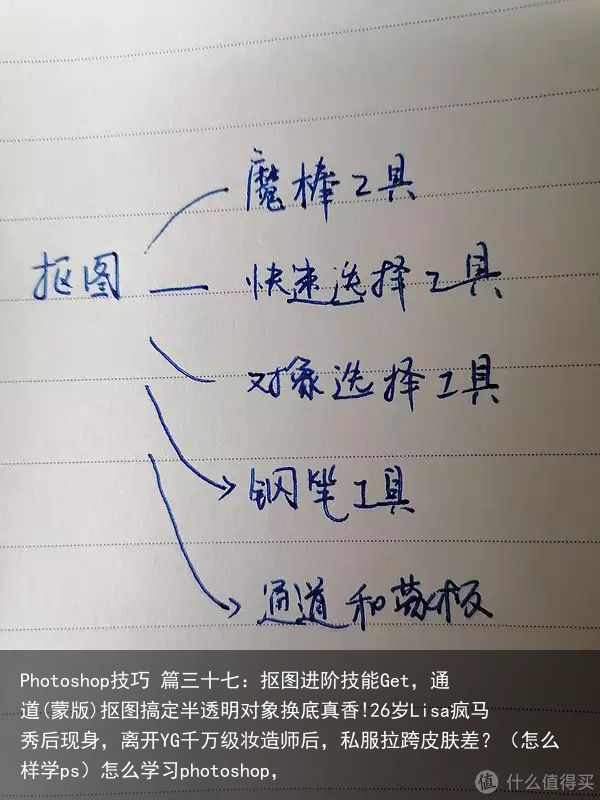 魔棒工具
抠图
快速选择工具
对象选择工具
钢笔工具
通道和蒙板
Photoshop技巧 篇三十七：抠图进阶技能Get，通
道(蒙版)抠图搞定半透明对象换底真香!26岁Lisa疯马
秀后现身，离开YG千万级妆造师后，私服拉跨皮肤差？（怎么
样学ps）怎么学习photoshop，
值 什么值得买